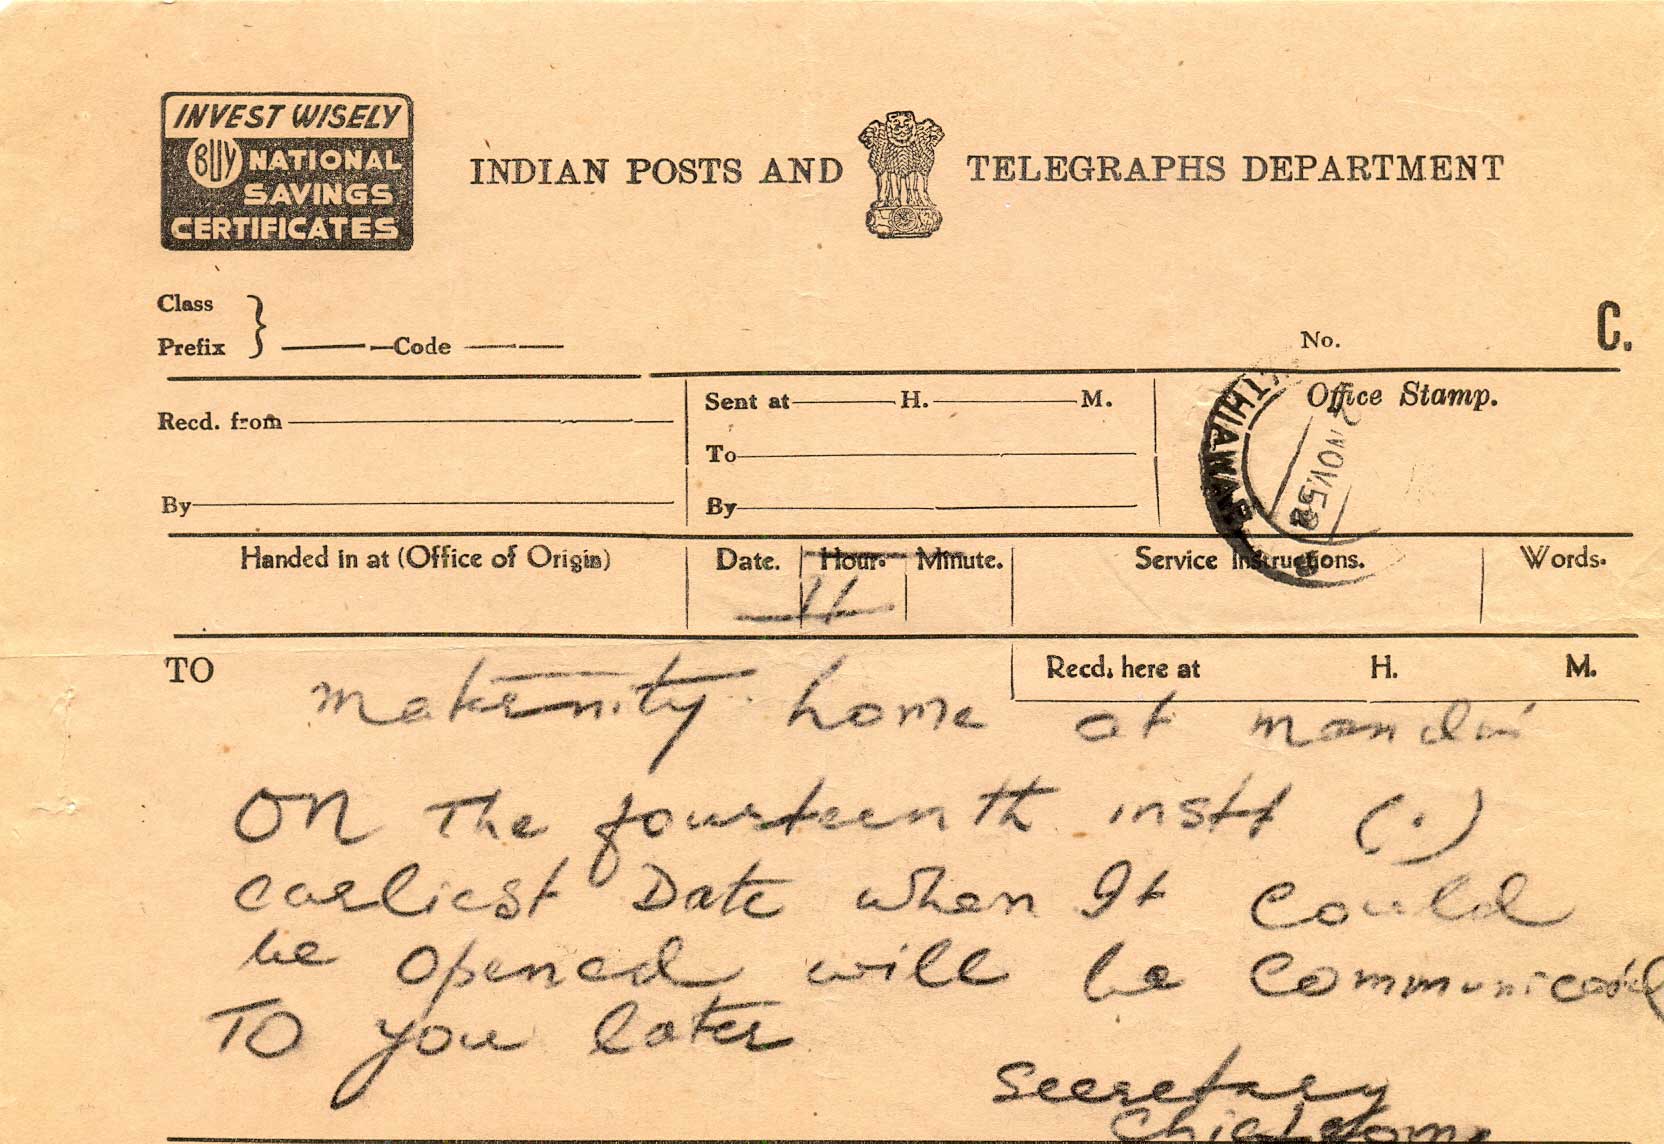 INVEST WISELY
BUY NATIONAL
SAVINGS
CERTIFICATES
INDIAN POSTS AND TELEGRAPHS DEPARTMENT
Class
Prefix } Code
No.
C.
Recd. from
Sent at H. M.
Office Stamp.
THIAWAR
NOV.52
To
By
By
Handed in at (Office of Origin) Date. Hour. Minute. Service Instructions. Words.
11
TO
Recd. here at H. M.
maternity home at
ON The fourteenth instt (.)
earliest Date when It could
be opened will be communicated
TO you later
Secretary